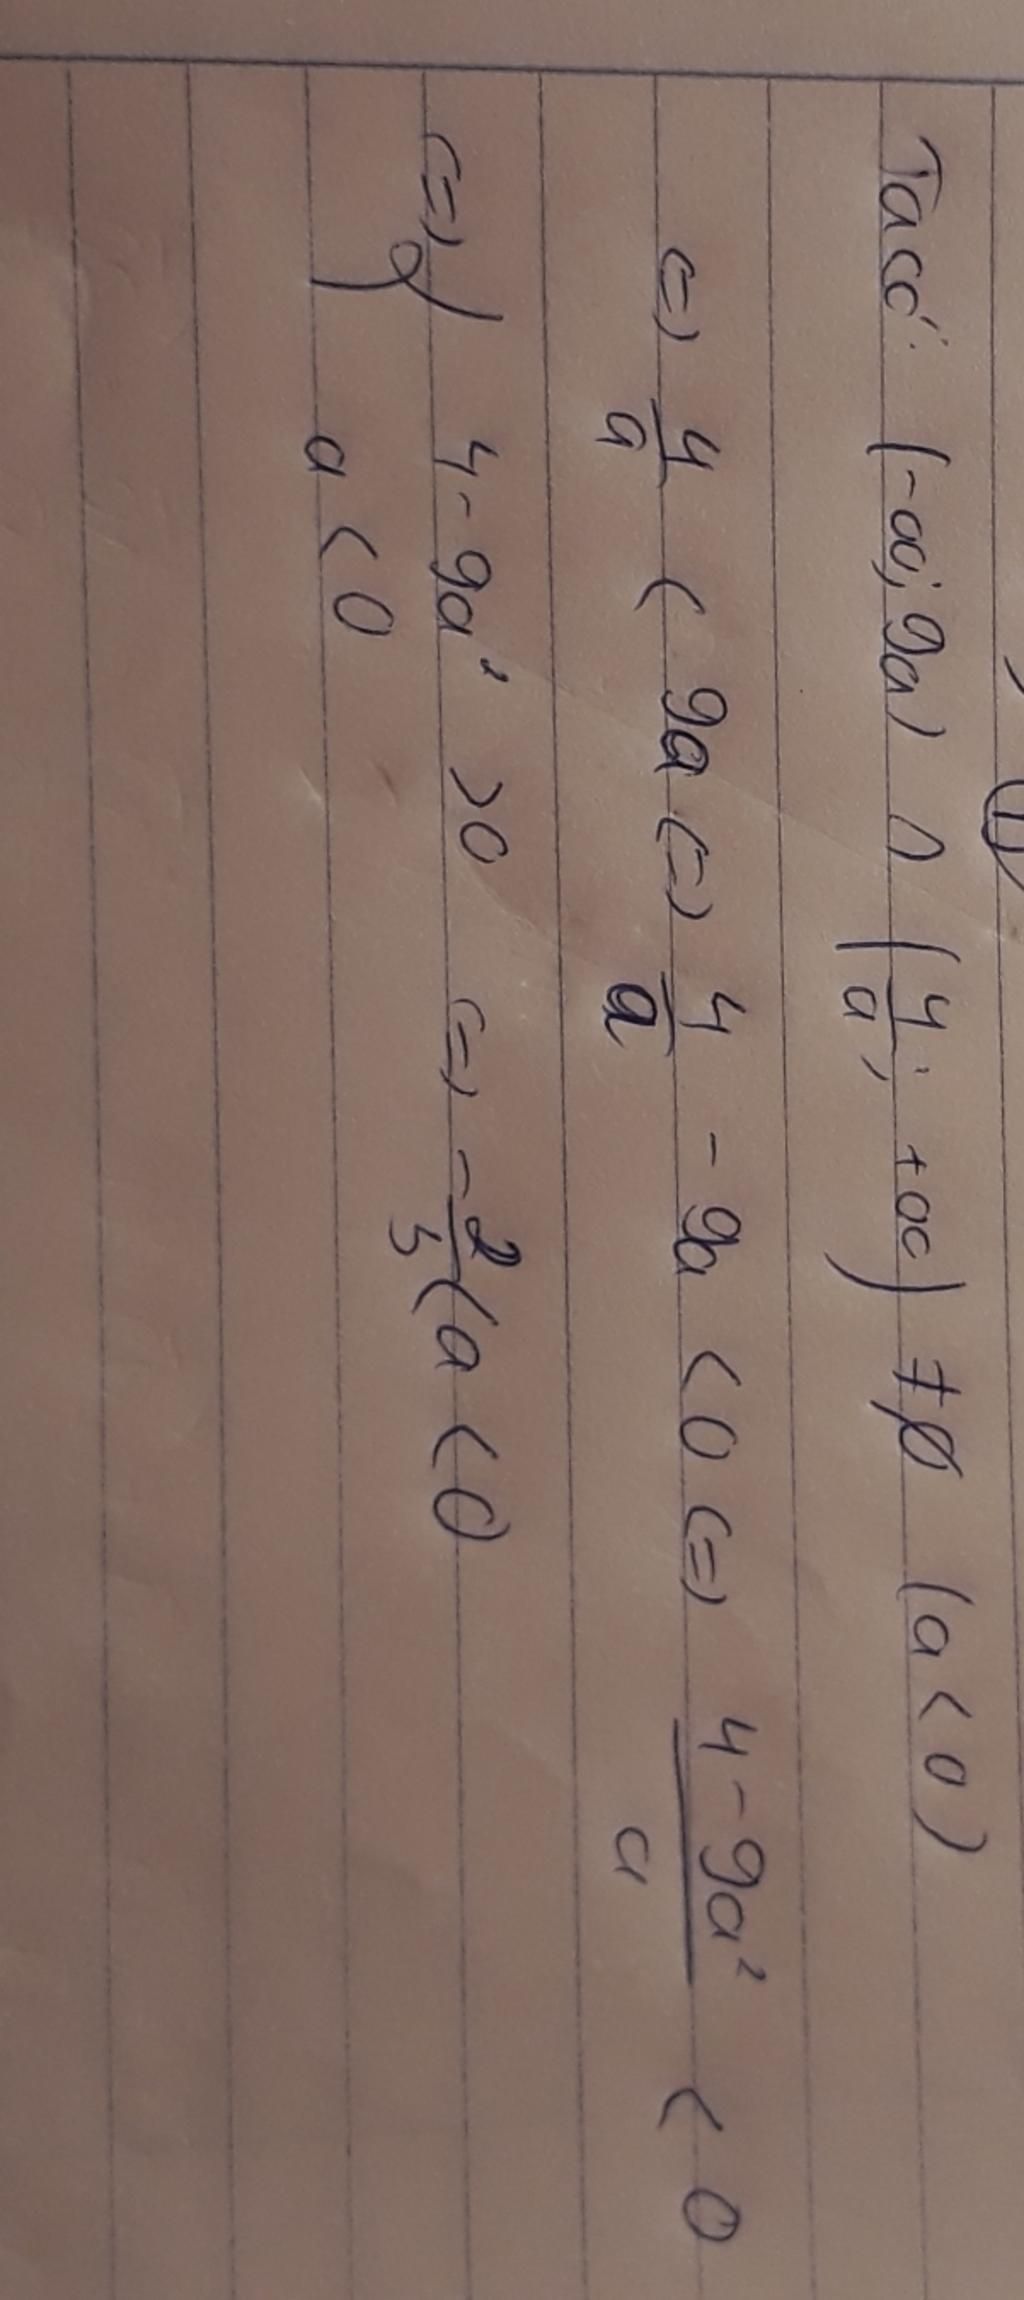 Ta có: (-∞; 9a) ∩ (4/a; +∞) ≠ ∅ (a < 0)
<=> 4/a < 9a <=> 4/a - 9a < 0 <=> (4 - 9a²)/a < 0
<=> { 4 - 9a² > 0 <=> -2/3 < a < 0
a < 0